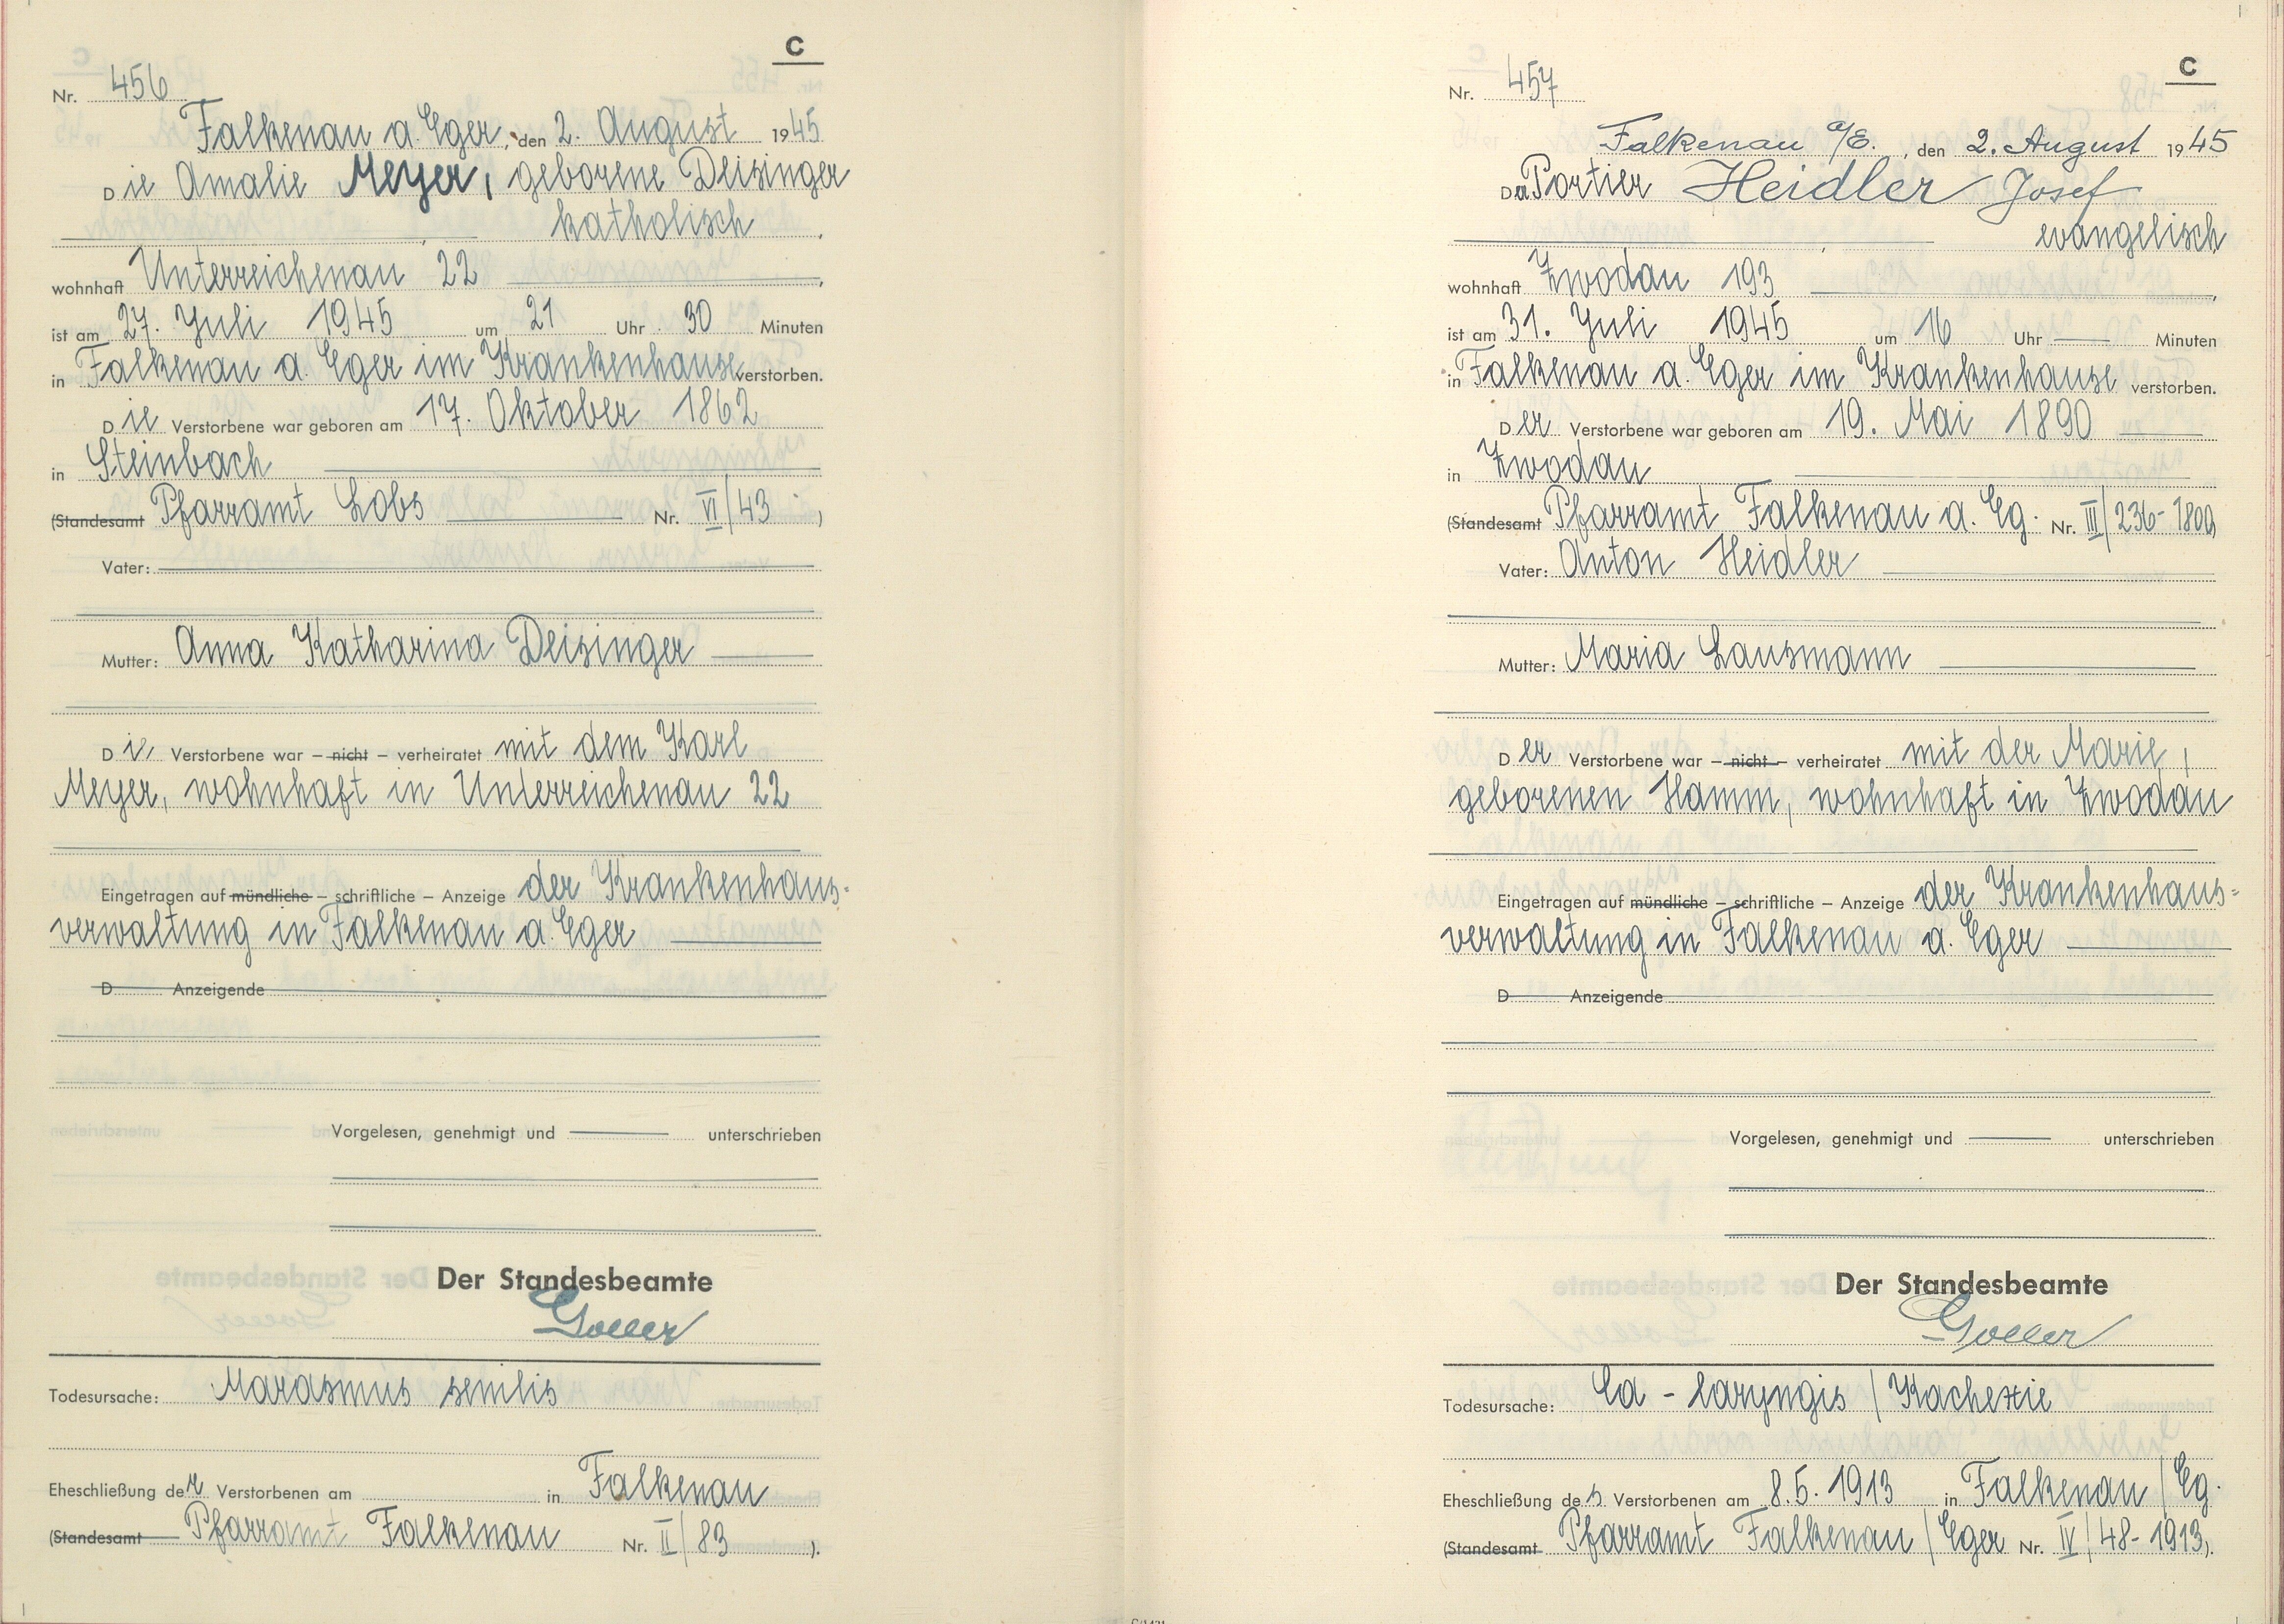 C
Nr. 456
Falkenau a. Eger, den 2. August 1945
Die Amalie Meyer, geborene Deisinger
katholisch
wohnhaft Unterreichenau 22
ist am 27. Juli 1945 um 21 Uhr 30 Minuten
in Falkenau a. Eger im Krankenhause verstorben.
Die Verstorbene war geboren am 17. Oktober 1862
in Steinbach
(Standesamt Pfarramt Lobs Nr. VI/43)
Vater:
Mutter: Anna Katharina Deisinger
Die Verstorbene war – nicht – verheiratet mit dem Karl
Meyer, wohnhaft in Unterreichenau 22
Eingetragen auf mündliche – schriftliche – Anzeige der Krankenhaus-
verwaltung in Falkenau a. Eger
D Anzeigende
Vorgelesen, genehmigt und unterschrieben
Der Standesbeamte
Goller
Todesursache: Marasmus senilis
Eheschließung der Verstorbenen am in Falkenau
(Standesamt Pfarramt Falkenau Nr. II/83).
C
Nr. 457
Falkenau a/E., den 2. August 1945
Der Portier Heidler Josef
evangelisch
wohnhaft Zwodau 193
ist am 31. Juli 1945 um 16 Uhr Minuten
in Falkenau a. Eger im Krankenhause verstorben.
Der Verstorbene war geboren am 19. Mai 1890
in Zwodau
(Standesamt Pfarramt Falkenau a. Eg. Nr. III/236-)
Vater: Anton Heidler
Mutter: Maria Lausmann
Der Verstorbene war – nicht – verheiratet mit der Marie,
geborenen Hamm, wohnhaft in Zwodau
Eingetragen auf mündliche – schriftliche – Anzeige der Krankenhaus-
verwaltung in Falkenau a. Eger
D Anzeigende
Vorgelesen, genehmigt und unterschrieben
Der Standesbeamte
Goller
Todesursache: Ca - laryngis / Kachexie
Eheschließung des Verstorbenen am 8.5.1913 in Falkenau / Eg.
(Standesamt Pfarramt Falkenau / Eger Nr. IV/48-1913).